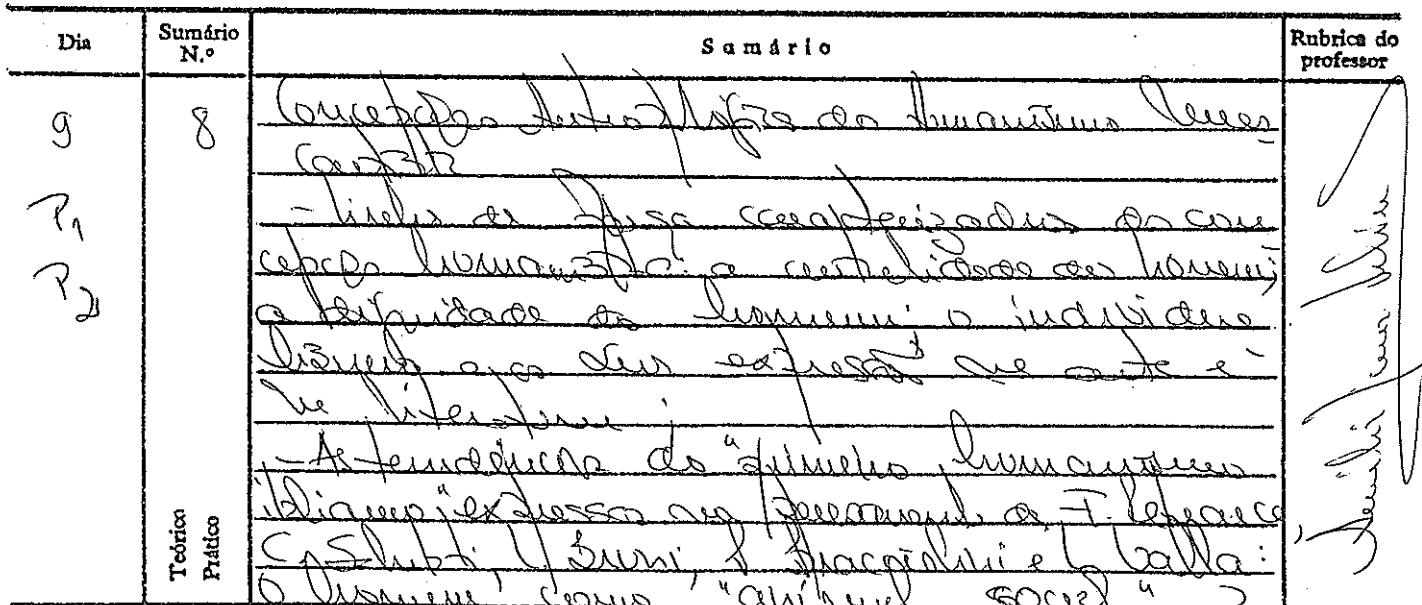 Dia Sumário N.º Sumário Rubrica do professor
9 8 Concepção Antropológica do Humanismo Renas-
centista
P1 - linhas de força caracterizadoras da con
P2 cepção humanista: a centralidade do homem;
a dignidade do homem; o individua
lismo e as suas expressões na arte e
na literatura;
- As tendências do "primeiro humanismo
italiano" expressas no pensamento de F. Petrarca
C. Salutati, L. Bruni, P. Bracciolini e L. Valla:
O homem como "animal social"
Teórico
Prático